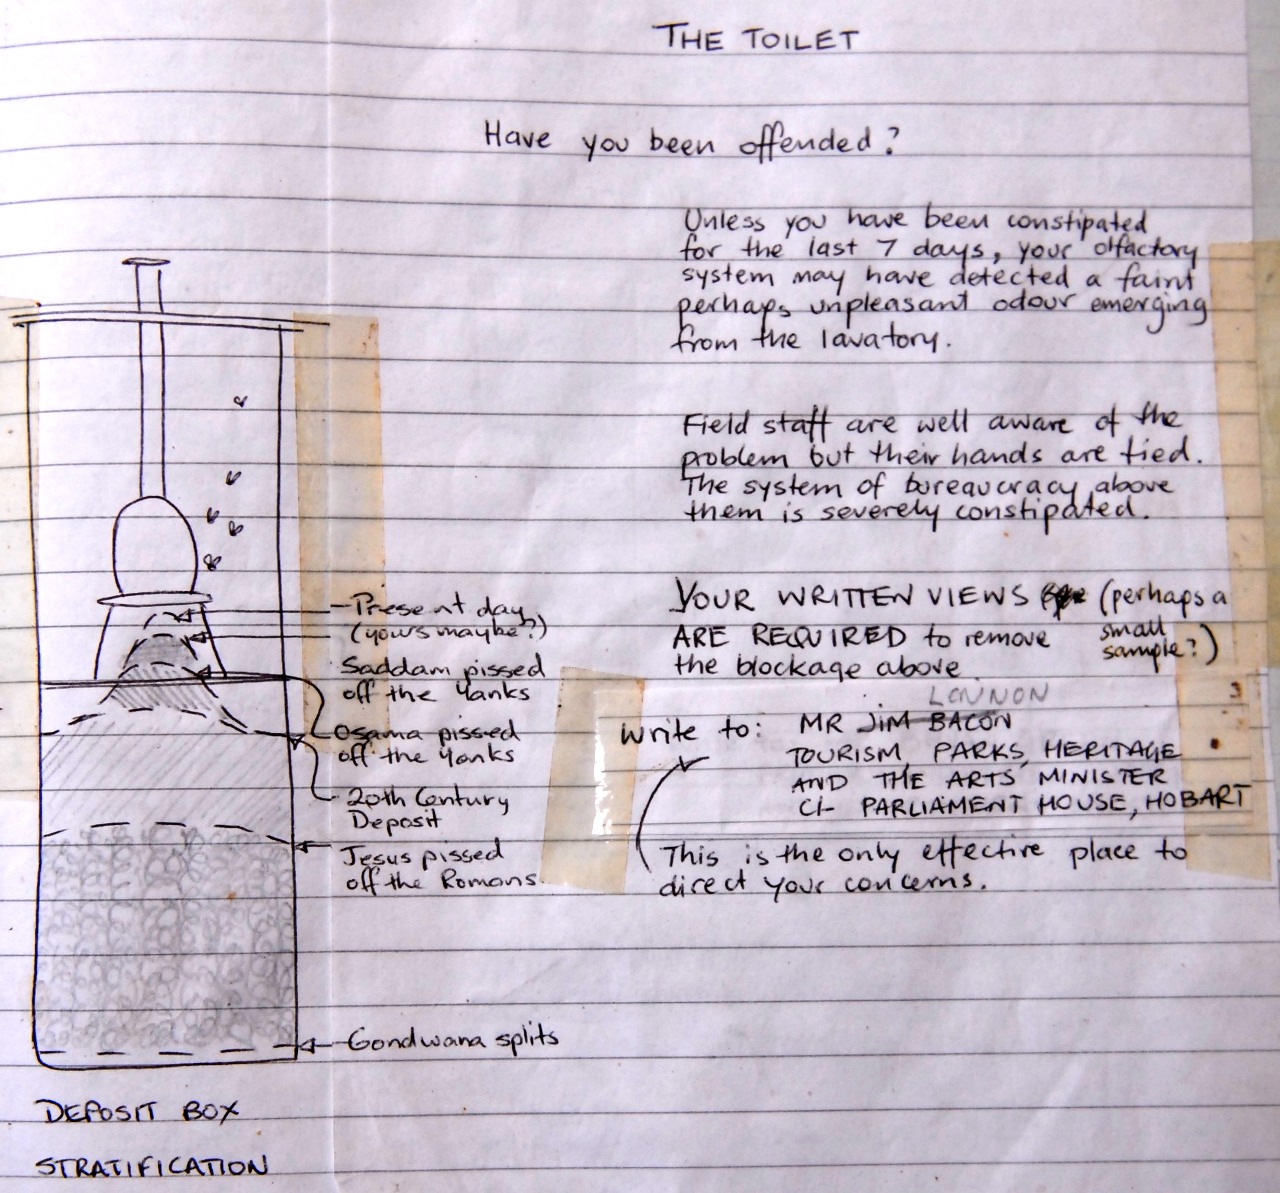 THE TOILET
Have you been offended?
Unless you have been constipated
for the last 7 days, your olfactory
system may have detected a faint
perhaps unpleasant odour emerging
from the lavatory.
Field staff are well aware of the
problem but their hands are tied.
The system of bureaucracy above
them is severely constipated.
YOUR WRITTEN VIEWS (perhaps a
small
sample?)
ARE REQUIRED to remove
the blockage above.
LENNON
Write to: MR JIM BACON
TOURISM, PARKS, HERITAGE
AND THE ARTS MINISTER
C/- PARLIAMENT HOUSE, HOBART
This is the only effective place to
direct your concerns.
Present day
(yours maybe?)
Saddam pissed
off the Yanks
Osama pissed
off the Yanks
20th Century
Deposit
Jesus pissed
off the Romans
Gondwana splits
DEPOSIT BOX
STRATIFICATION